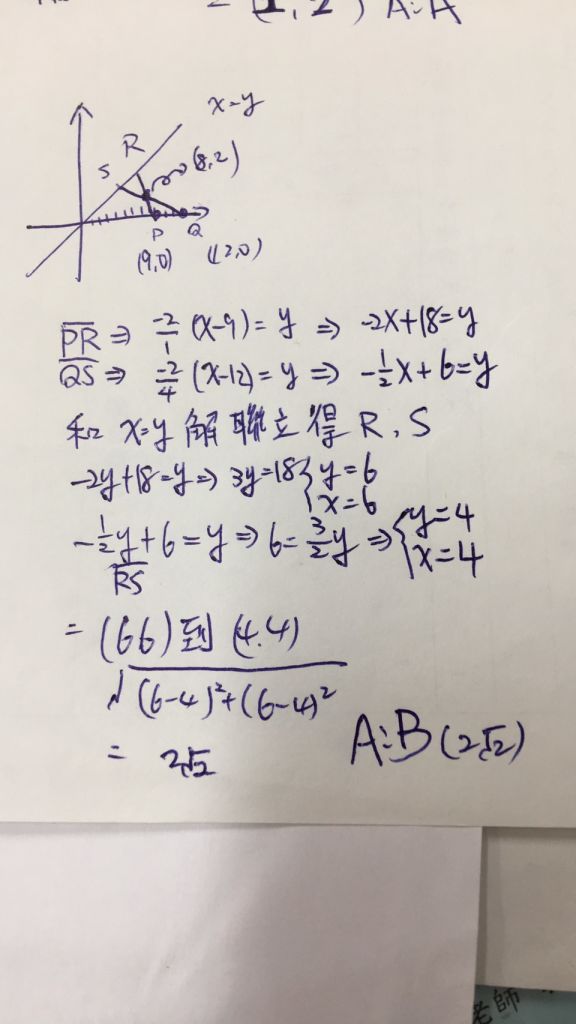 = (1, 2) A:A
x=y
R
S
(8,2)
P
Q
(9,0)
(12,0)
PR ⇒ -2/1 (x-9) = y ⇒ -2x+18=y
QS ⇒ -2/4 (x-12) = y ⇒ -1/2x+6=y
和 x=y 解聯立得 R、S
-2y+18=y ⇒ 3y=18 { y=6
x=6
-1/2y+6=y ⇒ 6=3/2y ⇒ { y=4
x=4
RS
= (66) 到 (4.4)
√(6-4)²+(6-4)²
= 2√2
A:B (2√2)
老師